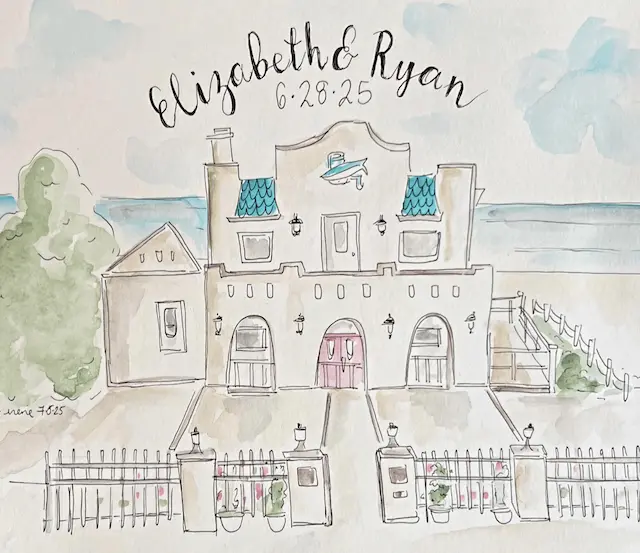 Elizabeth & Ryan
6·28·25
irene 7·8·25